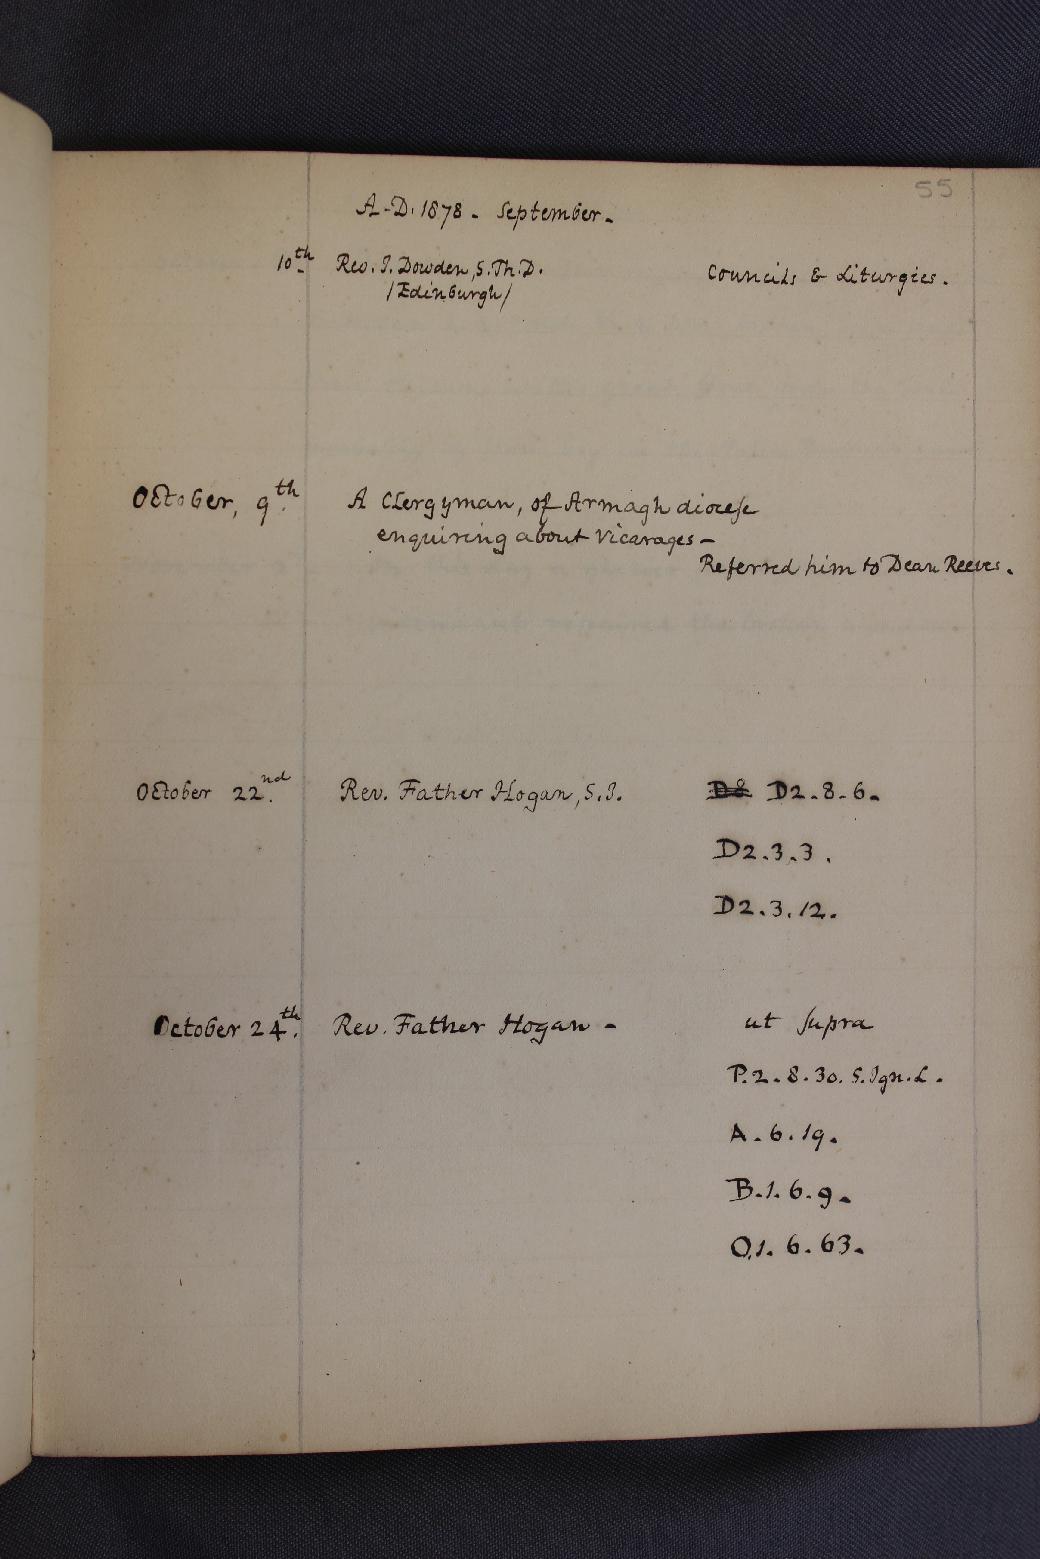 55
A.D. 1878. September.
10th Rev. J. Dowden, S.Th.D. Councils & Liturgies.
/Edinburgh/
October, 9th. A Clergyman, of Armagh diocese
enquiring about Vicarages -
Referred him to Dean Reeves.
October 22nd. Rev. Father Hogan, S.J. D8 D2.8.6.
D2.3.3.
D2.3.12.
October 24th. Rev. Father Hogan - ut supra
P.2.8.30. S. Ign. L.
A.6.19.
B.1.6.9.
O,1.6.63.